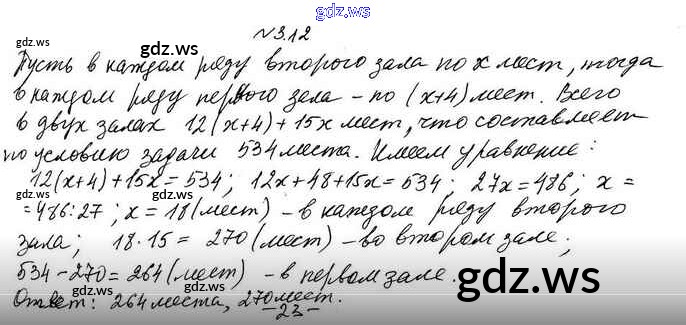 gdz.ws
№3.12
gdz.ws gdz.ws
Пусть в каждом ряду второго зала по x мест, тогда
в каждом ряду первого зала – по (x+4) мест. Всего
в двух залах 12(x+4)+15x мест, что составляет
по условию задачи 534 места. Имеем уравнение:
12(x+4)+15x=534; 12x+48+15x=534; 27x=486; x=
=486:27; x=18 (мест) – в каждом ряду второго
зала; 18·15=270 (мест) – во втором зале;
534-270=264 (мест) – в первом зале.
gdz.ws
Ответ: 264 места, 270 мест.
-23-
gdz.ws gdz.ws